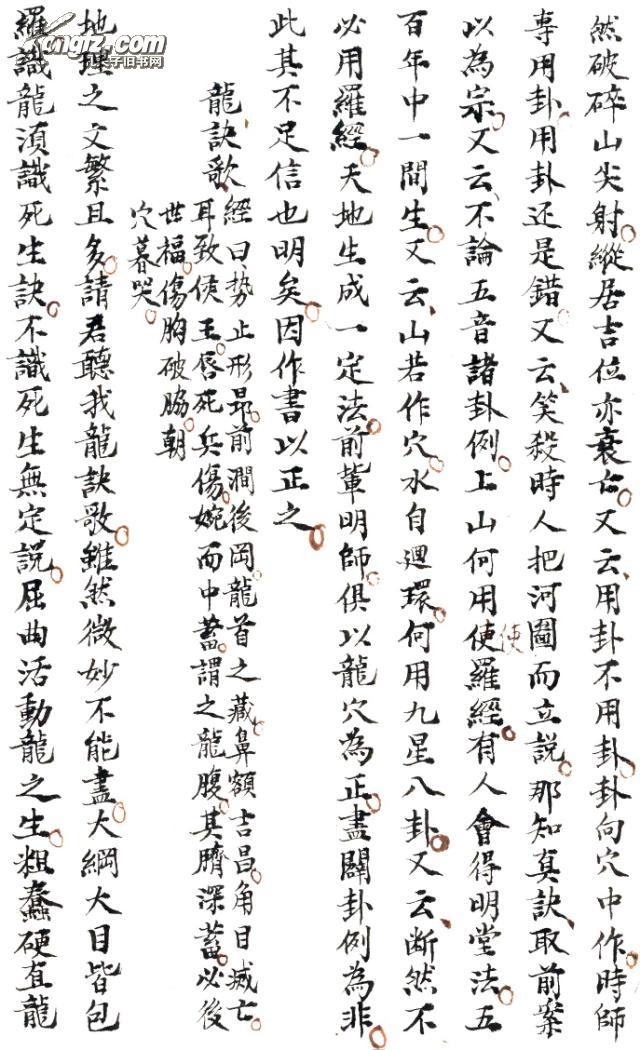 然破碎山尖射縱居吉位亦衰亡又云用卦不用卦卦向穴中作時師
專用卦用卦还是錯又云笑殺時人把河圖而立説那知真訣取前案
以為宗又云不論五音諸卦例上山何用使羅經有人會得明堂法五
使
百年中一間生又云山若作穴水自廻環何用九星八卦又云断然不
必用羅經天地生成一定法前輩明師俱以龍穴為正盡闢卦例為非
此其不足信也明矣因作書以正之
龍訣歌
經曰势止形昻前澗後岡龍首之藏鼻額吉昌角目滅亡
耳致侯王唇死兵傷婉而中蓄謂之龍腹其臍深蓄必後
世福傷胸破脇朝
穴暮哭
地理之文繁且多請君聽我龍訣歌雖然微妙不能盡大綱大目皆包
羅識龍湏識死生訣不識死生無定説屈曲活動龍之生粗蠢硬直龍
kongfz.com
孔夫子旧书网